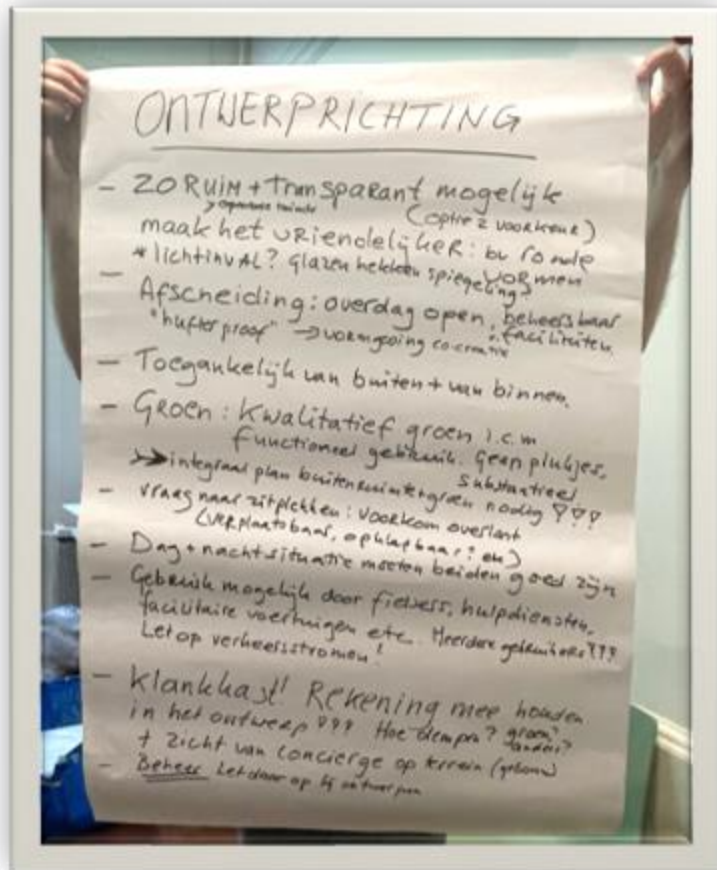 ONTWERPRICHTING
- ZO RUIM + TransparanT mogelijk
(optie 2 voorkeur)
maak het vriendelijker: bv ronde
vormen
* lichtinval? Glazen hekken spiegeling?
- Afscheiding: overdag open, beheersbaar
"hufterproof" → vormgeving cocreatie faciliteiten
- Toegankelijk van buiten + van binnen.
- Groen: Kwalitatief groen i.c.m
functioneel gebruik. Geen plukjes,
substantieel
→ integraal plan buitenruimte + groen nodig !!!
- vraag naar zitplekken: voorkom overlast
(verplaatsbaar, opklapbaar?
- Dag + nacht situatie moeten beiden goed zijn
- Gebruik mogelijk door fietsers, hulpdiensten,
facilitaire voertuigen etc. Meerdere gebruikers!!!
Let op verkeersstromen!
- Klankkast! Rekening mee houden
in het ontwerp !!! Hoe dempen? groen?
anders?
+ zicht van concierge op terrein (gebouw)
- Beheer Let daar op bij ontwerpen